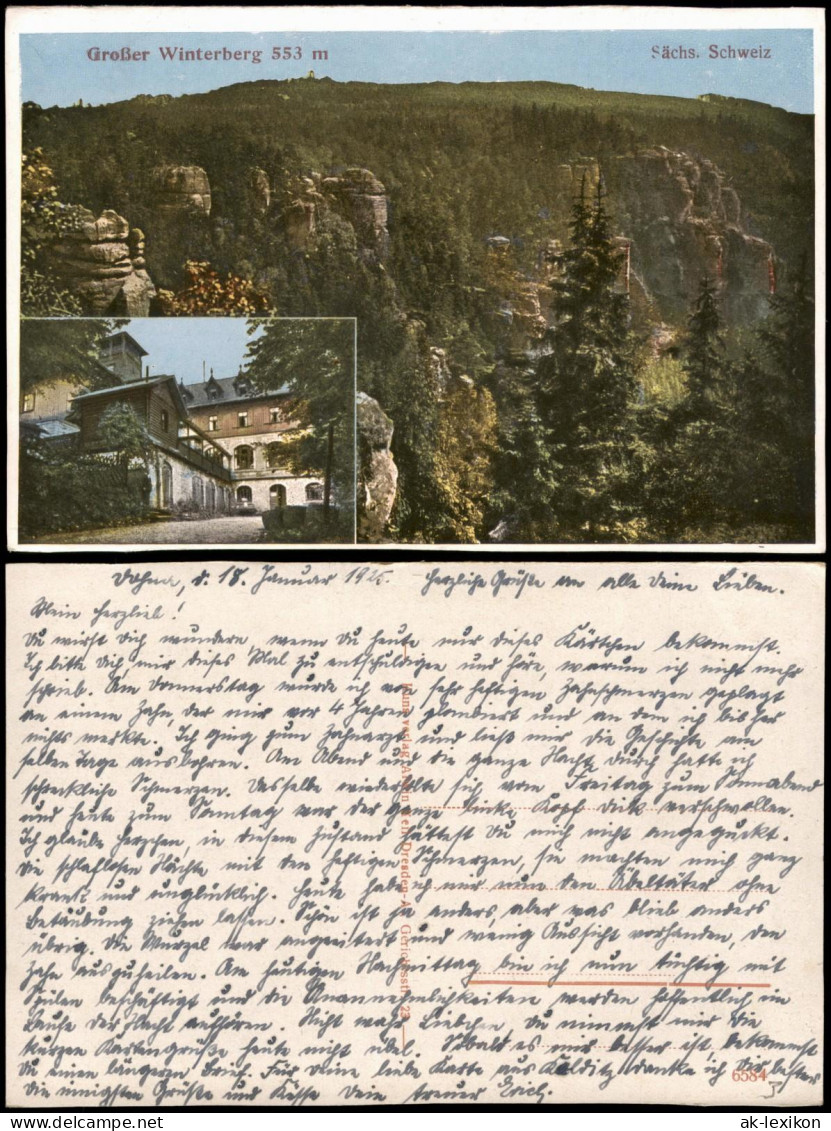 Großer Winterberg 553 m
Sächs. Schweiz
Dohna, d. 18. Januar 1925. Herzliche Grüße an alle Deine Lieben.
Mein Herzlieb!
Du wirst Dich wundern, wenn Du heute nur dieses Kärtchen bekommst.
Ich bitte Dich, mir dieses Mal zu entschuldigen und höre, warum ich nicht mehr
schrieb. Am Donnerstag wurde ich von sehr heftigen Zahnschmerzen geplagt
an einem Zahn, der mir vor 4 Jahren plombiert und an dem ich bisher
nichts merkte. Ich ging zum Zahnarzt und ließ mir die Geschichte am
selben Tage ausbohren. Am Abend und die ganze Nacht durch hatte ich
schreckliche Schmerzen. Dasselbe wiederholte sich vom Freitag zum Sonnabend
und heute zum Sonntag war der ganze linke Kopf dick verschwollen.
Ich glaube Herzchen, in diesem Zustand hättest Du mich nicht angeguckt.
Die schlaflosen Nächte mit den heftigen Schmerzen, sie machten mich ganz
krank und unglücklich. Heute habe ich mir nun den Übeltäter ohne
Betäubung ziehen lassen. Schön ist ja anders, aber was blieb anders
übrig. Die Wurzel war angeeitert und wenig Aussicht vorhanden, den
Zahn auszuheilen. Am heutigen Nachmittag bin ich nun tüchtig mit
Spülen beschäftigt und die Unannehmlichkeiten werden hoffentlich im
Laufe der Nacht aufhören. Nicht wahr Liebchen, Du nimmst mir die
kurzen Kartengrüße heute nicht übel. Sobald es mir besser ist, bekommst
Du einen längeren Brief. Für Deine liebe Karte aus Colditz danke ich Dir bestens
Die innigsten Grüße und Küsse Dein treuer Erich.
6584
ak-lexikon